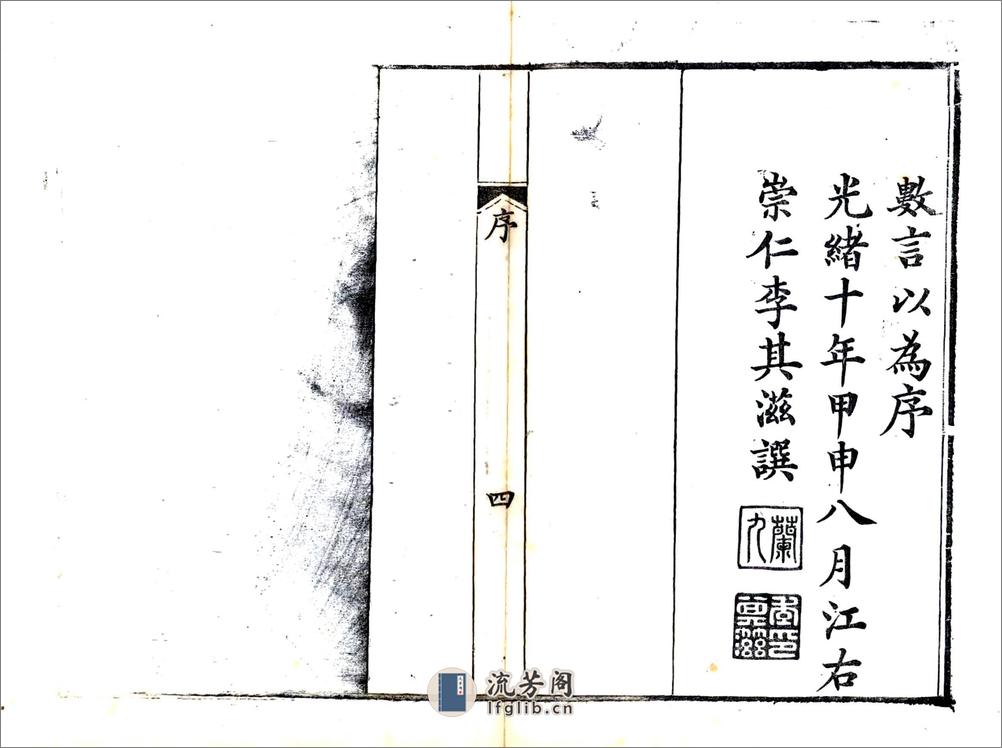 數言以為序
光緒十年甲申八月江右
崇仁李其滋譔
蘭九
李印其滋
序
四
流芳阁
lfglib.cn